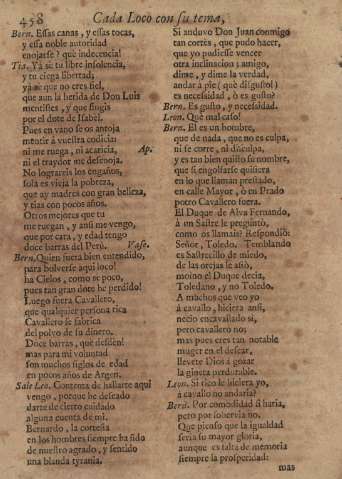 458 Cada Loco con su tema,
Bern. Essas canas, y essas tocas,
y essa noble autoridad
enojarse? què indecencia!
Tia. Yà sè tu libre insolencia,
y tu ciega libertad;
yà sè que no eres fiel,
que aun la herida de Don Luis
mentiste, y que fingis
por el dote de Isabèl.
Pues en vano se os antoja
mentir à vuestra codicia
ni me ruega, ni acaricia, Ap.
ni el traydor me desenoja.
No lograreis los engaños,
sola es vieja la pobreza,
que ay madres con gran belleza,
y tias con pocos años.
Otros mejores que tu
me ruegan, y ansi me vengo,
que por cara, y edad tengo
doce barras del Perù. Vase.
Bern. Quien fuera bien entendido,
para bolverse aqui loco!
ha Cielos, como es poco,
pues tan gran dote he perdido!
Luego fuera Cavallero,
que qualquier persona rica
Cavallero se fabrica
del polvo de su dinero.
Doce barras, què desdèn!
mas para mi voluntad
son muchos siglos de edad
en pocos años de Argen.
Sale Leo. Contenta de hallarte aqui
vengo, porque he deseado
darte de cierto cuidado
alguna cuenta de mi.
Bernardo, la cortesia
en los hombres siempre ha sido
de nuestro agrado, y sentido
una blanda tyrania.
Si anduvo Don Juan conmigo
tan cortès, que pudo hacer,
que yo pudiesse vencer
otra inclinacion; amigo,
dime, y dime la verdad,
andar à pie (què disgusto!)
es necessidad, ò es gusto?
Bern. Es gusto, y necesidad.
Leon. Què mal caso!
Bern. El es un hombre,
que de nada, que no es culpa,
ni se corre, ni disculpa,
y es tan bien quisto su nombre,
que si engolfarse quisiera
en lo que llaman prestado,
en calle Mayor, ò en Prado
potro Cavallero fuera.
El Duque de Alva Fernando,
à un Sastre le preguntò,
como os llamais? Respondiò:
Señor, Toledo. Temblando
es Sastrecillo de miedo,
de las orejas le asiò,
mohino el Duque decia,
Toledano, y no Toledo.
A muchos que veo yo
à cavallo, hiciera ansi,
necio encavallado si,
pero cavallero no;
mas pues eres tan notable
muger en el desear,
llevete Dios à gozar
la gineta perdurable.
Leon. Si rico le hiciera yo,
à cavallo no andaria?
Bern. Por comodidad si haria,
pero por sobervia no.
Que pienso que la igualdad
seria su mayor gloria,
aunque es falta de memoria
siempre la prosperidad:
mas